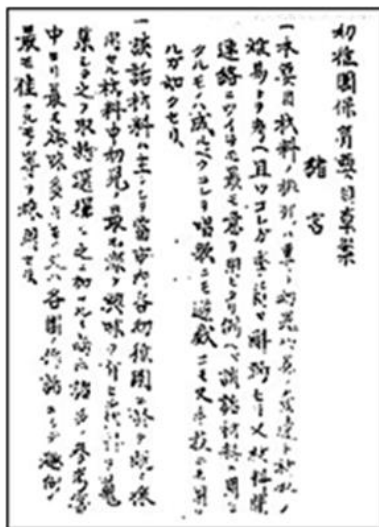 幼稚園保育要目草案
緒言
一本要目材料ノ排列ハ専ラ幼児心意ノ発達ト材料ノ
易トヲ考ヘ且ツコレガ季節ニ セシメ又
連絡ニツイテモ最モ意ヲ用ヒタリ例ヘバ談話材料ニ用ヒ
タルモノハ成ルベクコレヲ唱歌ニモ遊戯ニモ又手技ニモ用ヒ
ルガ如クセリ
一談話材料ハ主トシテ當市内各幼稚園ニ於テ既ニ使
用セル材料中幼児ノ最モ深ク興味ヲ有セル ヲ蒐
集シテ之ヲ取捨選擇シ之ニ加フルニ ノ参考書
中ヨリ最モ趣味多キモノ又ハ各園ノ作話ニシテ
最モ佳ナルモノ等ヲ採用セリ